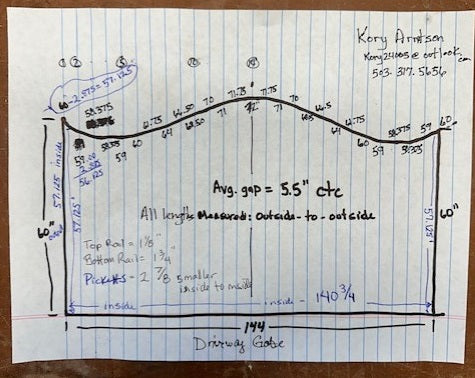 Kory Arntson
Kory24005@outlook.com
503.317.5656
① ② ⑤ ⑩ ⑭
60"-2.875=57.125"
58.375
59 58.375 59 60 64 62.50 71 72" 71
61.75 66.50 70 71.75" 71.75 70 66.5 62.75 58.375 59 60
60 59 58.375
59.00
2.875
56.125
57.125 inside
57.125"
60"
57.125"
60"
Avg. gap = 5.5" ctc
All lengths Measured: outside-to-outside
Top Rail = 1 1/8"
Bottom Rail = 1 3/4"
Pickets - 2 7/8 smaller
inside to inside
inside inside - 140 3/4
144
Driveway Gate